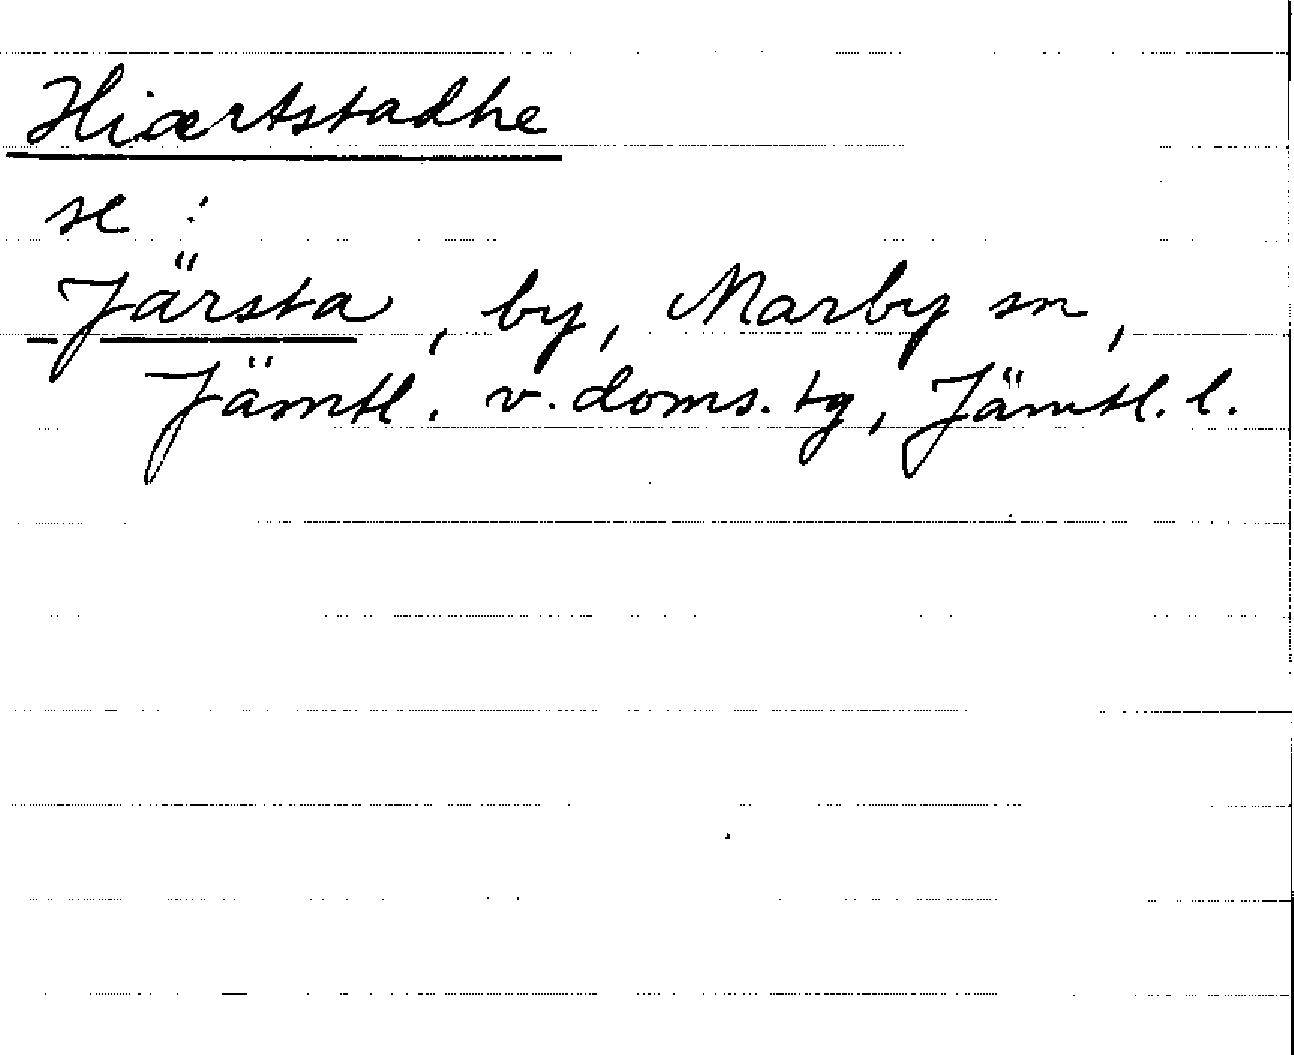 Hiærtstadhe
se :
Järsta, by, Marby sn,
Jämtl. v. doms. tg, Jämtl. l.